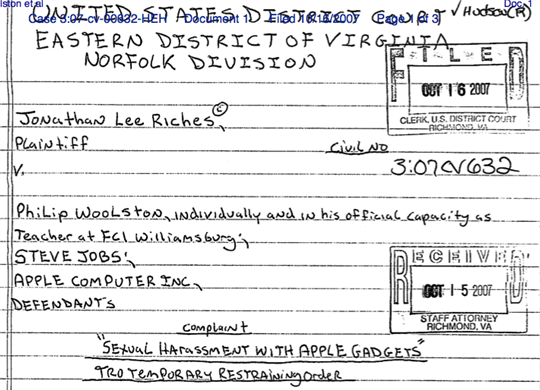 lston et al Doc. 1
Case 3:07-cv-00632-HEH Document 1 Filed 10/16/2007 Page 1 of 3
UNITED STATES DISTRICT COURT √ Hudson(R)
EASTERN DISTRICT OF VIRGINIA
NORFOLK DIVISION
FILED
OCT 16 2007
CLERK, U.S. DISTRICT COURT
RICHMOND, VA
Jonathan Lee Riches©,
Plaintiff Civil No
V. 3:07CV632
PhiLip WooLston, individually and in his official capacity as
Teacher at FCI Williamsburg;,
STEVE JOBS;,
APPLE COMPUTER INC,
DEFENDANT'S
RECEIVED
OCT 15 2007
STAFF ATTORNEY
RICHMOND, VA
Complaint
"SEXUAL HARASSMENT WITH APPLE GADGETS"
TRO TEMPORARY RESTRAINING Order